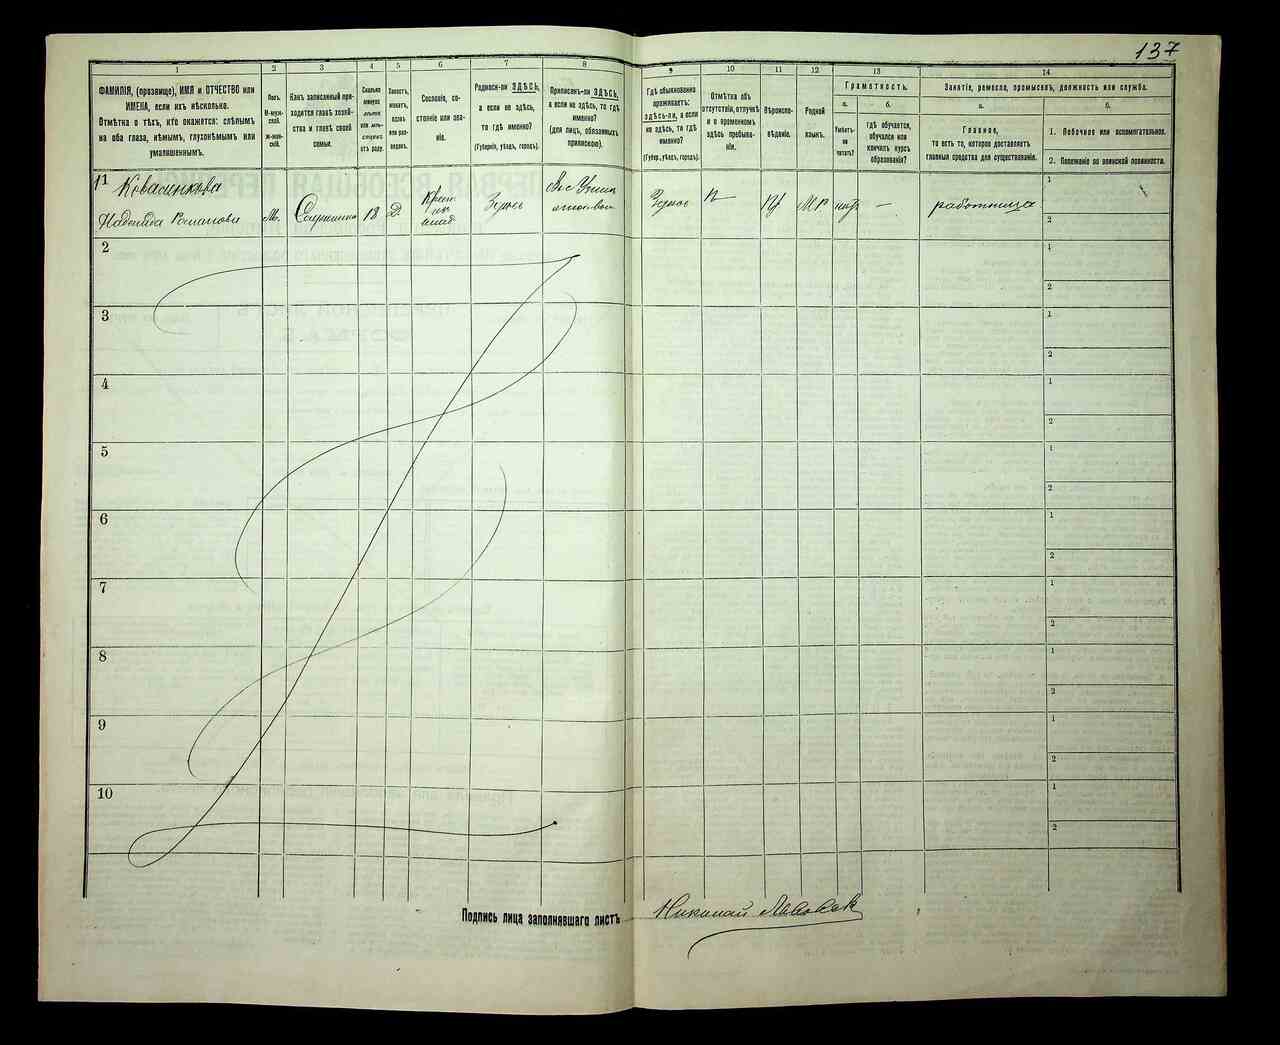 137
1
2
3
4
5
6
7
8
9
10
11
12
13
14
ФАМИЛІЯ, (прозвище), ИМЯ и ОТЧЕСТВО или
ИМЕНА, если ихъ нѣсколько.
Отмѣтка о тѣхъ, кто окажется: слѣпымъ
на оба глаза, нѣмымъ, глухонѣмымъ или
умалишеннымъ.
Полъ.
М-муж-
ской.
Ж-жен-
скій.
Какъ записанный при-
ходится главѣ хозяй-
ства и главѣ своей
семьи.
Сколько
минуло
лѣтъ
или мѣ-
сяцевъ
отъ роду.
Холостъ,
женатъ,
вдовъ
или раз-
веденъ.
Сословіе, со-
стояніе или зва-
ніе.
Родился-ли ЗДѢСЬ,
а если не здѣсь,
то гдѣ именно?
(Губернія, уѣздъ, городъ).
Приписанъ-ли ЗДѢСЬ,
а если не здѣсь, то гдѣ
именно?
(Для лицъ, обязанныхъ
припискою).
Гдѣ обыкновенно
проживаетъ:
здѣсь-ли, а если
не здѣсь, то гдѣ
именно?
(Губер., уѣздъ, городъ).
Отмѣтка объ
отсутствіи, отлучкѣ
и о временномъ
здѣсь пребыва-
ніи.
Вѣроиспо-
вѣданіе.
Родной
языкъ.
Грамотность.
а.
Умѣетъ-
ли
читать?
б.
гдѣ обучается,
обучался или
кончилъ курсъ
образованія?
Занятіе, ремесло, промыселъ, должность или служба.
а.
Главное,
то есть то, которое доставляетъ
главныя средства для существованія.
б.
1. Побочное или вспомогательное.
2. Положеніе по воинской повинности.
11
Надежда Романова
18
Д
Здѣсь
Здѣсь
—
работница
1
2
2
1
2
3
1
2
4
1
2
5
1
2
6
1
2
7
1
2
8
1
2
9
1
2
10
1
2
Подпись лица заполнявшаго листъ
Николай